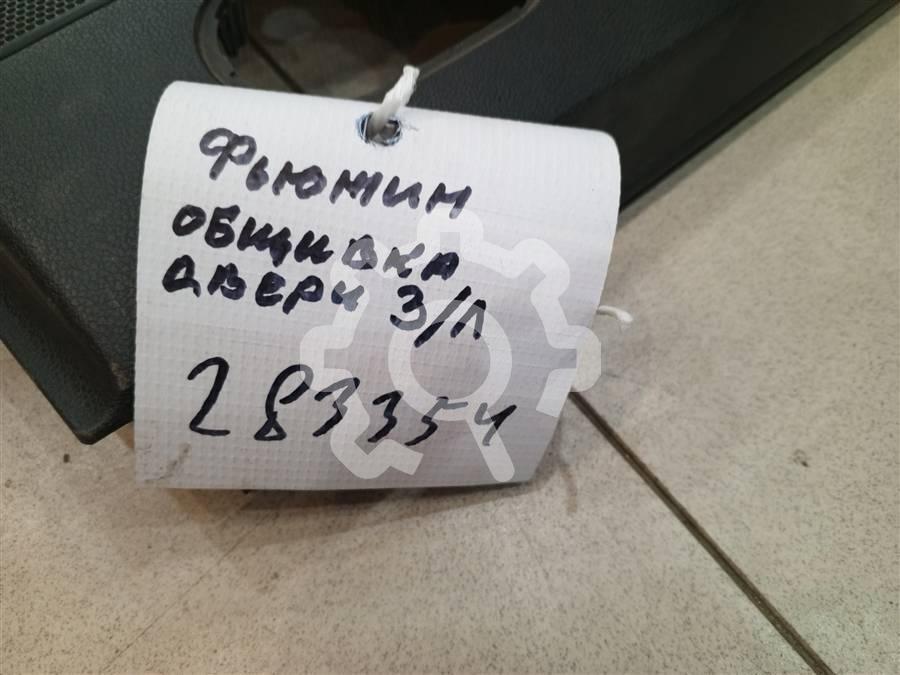 Фьюжин
ОБЩИВКА
ДВЕРИ З/Л
283354